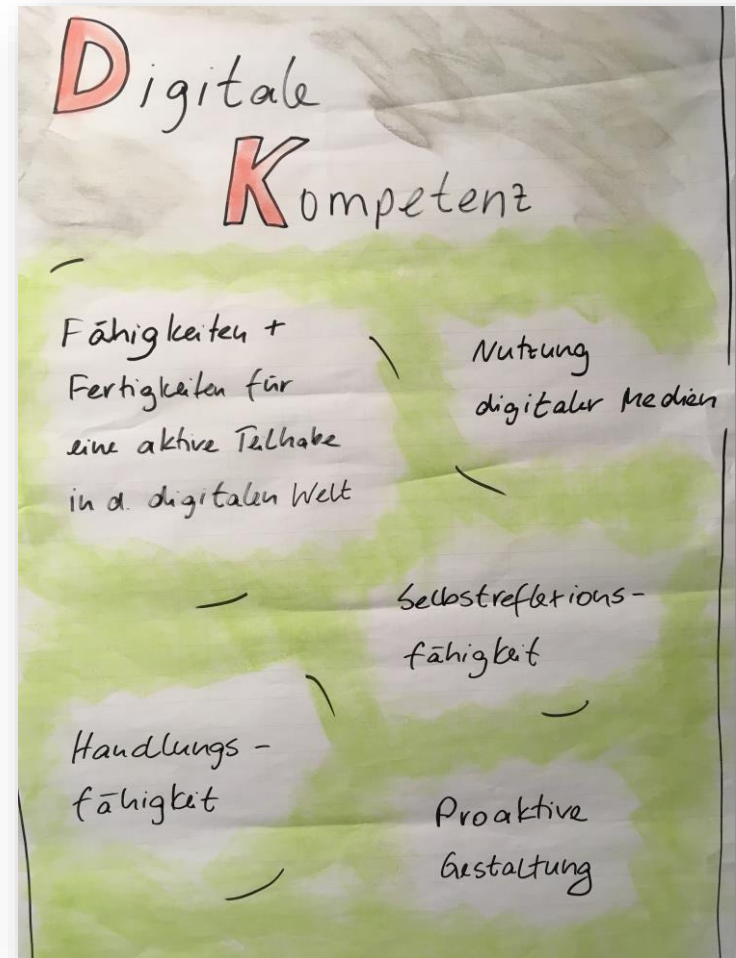 Digitale
Kompetenz
Fähigkeiten +
Fertigkeiten für
eine aktive Teilhabe
in d. digitalen Welt
Nutzung
digitaler Medien
Selbstreflexions-
fähigkeit
Handlungs-
fähigkeit
Proaktive
Gestaltung